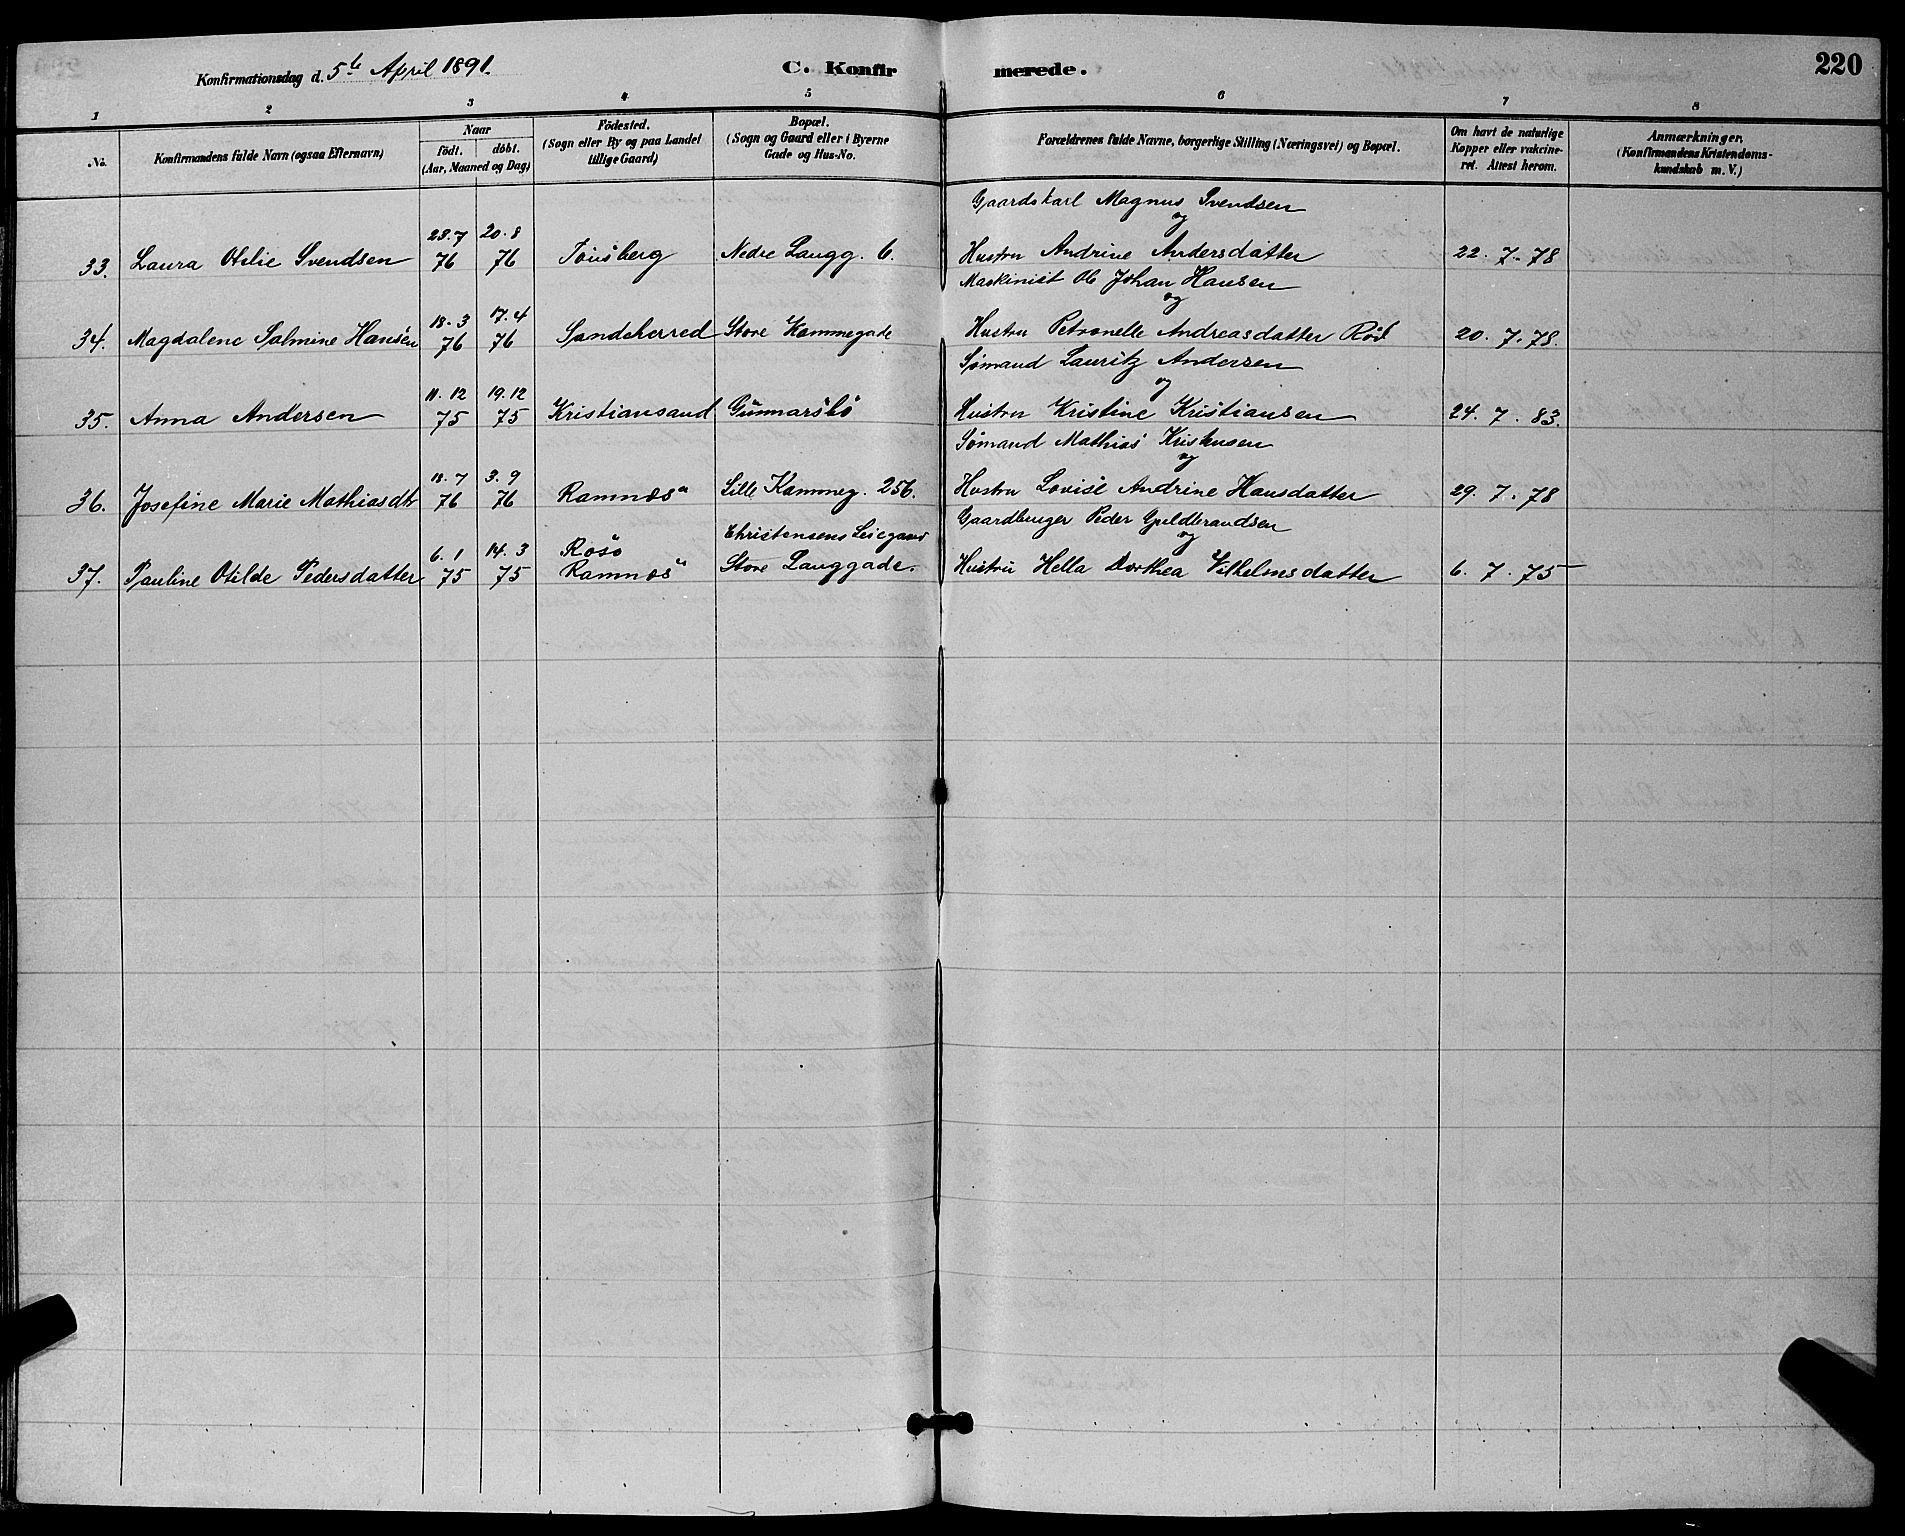 Konfirmationsdag d. 5te April 1891. C. Konfirmerede. 220
1 2 3 4 5 6 7 8
No.
Konfirmandens fulde Navn (ogsaa Efternavn)
Naar
födt. döbt.
(Aar, Maaned og Dag)
Födested.
(Sogn eller By og paa Landet
tillige Gaard)
Bopæl.
(Sogn og Gaard eller i Byerne
Gade og Hus-No.
Forældrenes fulde Navne, borgerlige Stilling (Næringsvei) og Bopæl.
Om havt de naturlige
Kopper eller vakcine-
ret. Attest herom.
Anmærkninger.
(Konfirmandens Kristendoms-
kundskab m. V.)
Gaardskarl Magnus Svendsen
og
28.7 20.8
33. Laura Otilie Svendsen 76 76 Tönsberg Nedre Langg. 6. Hustru Andrine Andersdatter 22. 7. 78
Maskinist Ole Johan Hansen
og
18.3 17.4
34. Magdalene Salmine Hansen 76 76 Sandeherred Store Kammegade Hustru Petronelle Andreasdatter Röd 20. 7. 78.
Sømand Lauritz Andersen
og
11.12 19.12
35. Anna Andersen 75 75 Kristiansand Gunnarsbö Hustru Kristine Kristiansen 24. 7. 83.
Sømand Mathias
og
18.7 3.9
36. Josefine Marie Mathiasdtr 76 76 Ramnæs Lille Kammeg. 256. Hustru Lovise Andrine Hansdatter 29. 7. 78
Christensens Leiegaard Gaardbruger Peder Guldbrandsen
og
6.1 14.3 Rösö
37. Pauline Otilde Pedersdatter 75 75 Ramnæs Store Langgade. Hustru Hella Dorthea Vilhelmsdatter 6. 7. 75